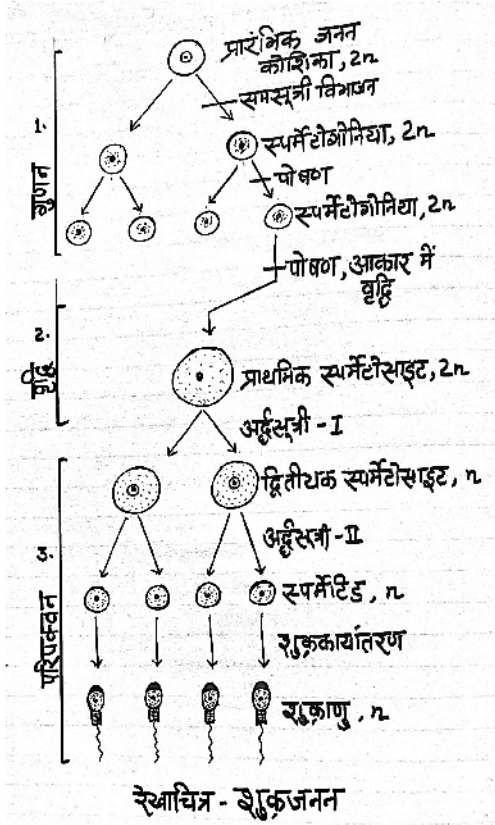 प्रारंभिक जनन
कोशिका, 2n
समसूत्री विभाजन
1.
गुणन
स्पर्मेटोगोनिया, 2n
पोषण
स्पर्मेटोगोनिया, 2n
पोषण, आकार में
वृद्धि
2.
वृद्धि
प्राथमिक स्पर्मेटोसाइट, 2n
अर्द्धसूत्री - I
द्वितीयक स्पर्मेटोसाइट, n
अर्द्धसूत्री - II
3.
परिपक्वन
स्पर्मेटिड, n
शुक्रकायांतरण
शुक्राणु, n
रेखाचित्र - शुक्रजनन